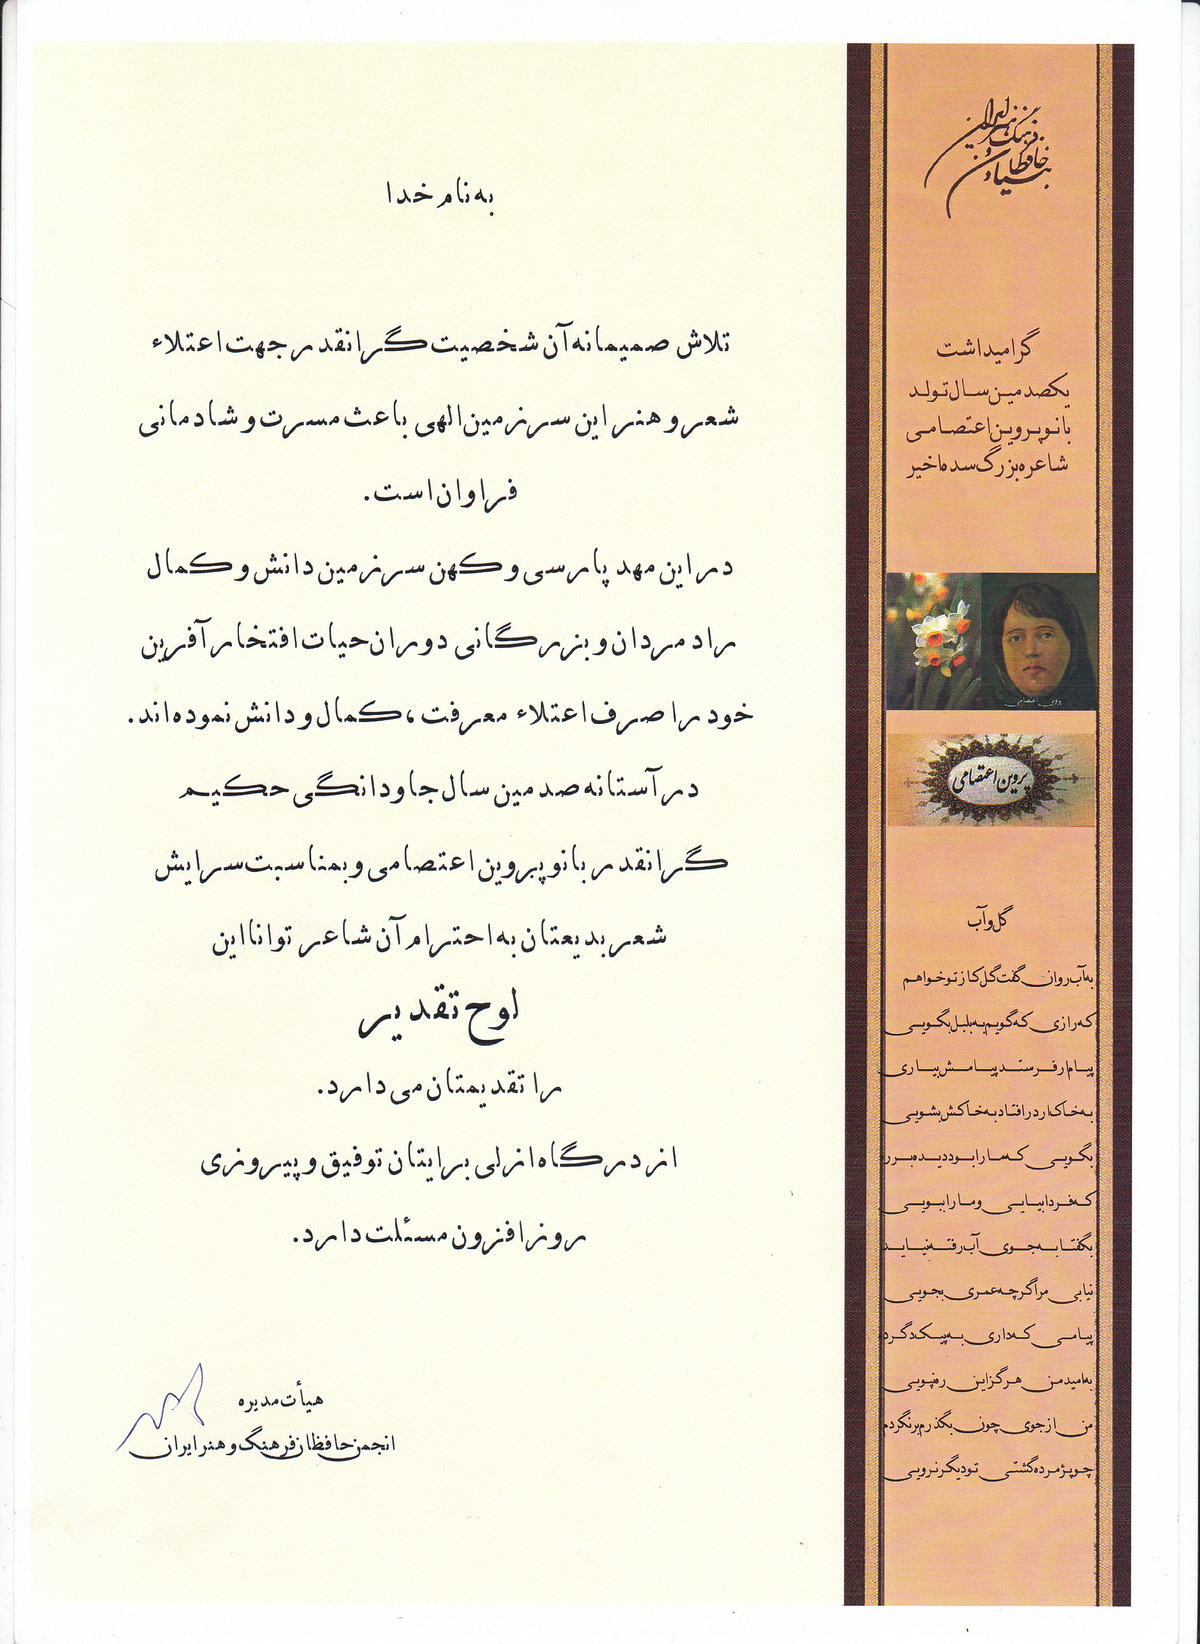 بنیاد حافظان فرهنگ و هنر ایران زمین
گرامیداشت
یکصدمین سال تولد
بانو پروین اعتصامی
شاعره بزرگ سده اخیر
پروین اعتصامی
پروین اعتصامی
گل و آب
به آب روان گفت گل کاز تو خواهم
که رازی که گویم به بلبل بگویی
پیام ار فرستد پیامش بیاری
به خاک ار درافتاد به خاکش بشویی
بگویی که ما را بود دیده بر ره
که فردا بیایی و ما را ببویی
بگفتا به جوی آب رفته نیاید
نیابی مرا گر چه عمری بجویی
پیامی که داری به پیک دگر ده
به امید من هرگز این ره نپویی
من از جوی چون بگذرم برنگردم
چو پژمرده گشتی تو دیگر نرویی
به نام خدا
تلاش صمیمانه آن شخصیت گرانقدر جهت اعتلاء
شعر و هنر این سرزمین الهی باعث مسرت و شادمانی
فراوان است.
در این مهد پارسی و کهن سرزمین دانش و کمال
راد مردان و بزرگانی دوران حیات افتخار آفرین
خود را صرف اعتلاء معرفت، کمال و دانش نموده اند.
در آستانه صدمین سال جاودانگی حکیم
گرانقدر بانو پروین اعتصامی و بمناسبت سرایش
شعر بدیعتان به احترام آن شاعر توانا این
لوح تقدیر
را تقدیمتان می دارد.
از درگاه ازلی برایتان توفیق و پیروزی
روز افزون مسئلت دارد.
هیأت مدیره
انجمن حافظان فرهنگ و هنر ایران